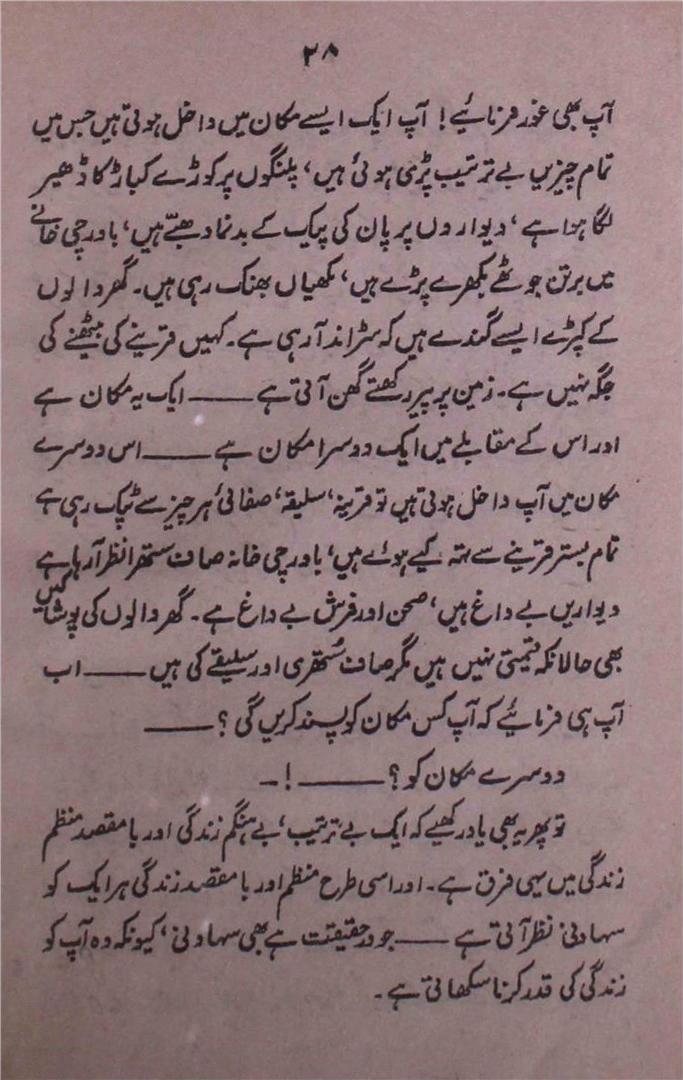 ۲۸
آپ بھی غور فرمائیے! آپ ایک ایسے مکان میں داخل ہوتی ہیں جس میں
تمام چیزیں بے ترتیب پڑی ہوئی ہیں، پلنگوں پر کوڑے کباڑ کا ڈھیر
لگا ہوا ہے، دیواروں پر پان کی پیک کے بدنما دھبے ہیں، باورچی خانے
میں برتن جوٹھے بکھرے پڑے ہیں، مکھیاں بھنک رہی ہیں۔ گھر والوں
کے کپڑے ایسے گندے ہیں کہ سڑاند آ رہی ہے۔ کہیں قرینے کی بیٹھنے کی
جگہ نہیں ہے۔ زمین پر پیر رکھتے گھن آتی ہے —— ایک یہ مکان ہے
اور اس کے مقابلے میں ایک دوسرا مکان ہے —— اس دوسرے
مکان میں آپ داخل ہوتی ہیں تو قرینہ، سلیقہ، صفائی ہر چیز سے ٹپک رہی ہے
تمام بستر قرینے سے تہہ کیے ہوئے ہیں، باورچی خانہ صاف ستھرا نظر آ رہا ہے
دیواریں بے داغ ہیں، صحن اور فرش بے داغ ہے۔ گھر والوں کی پوشاکیں
بھی حالانکہ قیمتی نہیں ہیں مگر صاف ستھری اور سلیقے کی ہیں —— اب
آپ ہی فرمائیے کہ آپ کس مکان کو پسند کریں گی؟ ——
دوسرے مکان کو؟ —— !۔
تو پھر یہ بھی یاد رکھیے کہ ایک بے ترتیب، بے ہنگم زندگی اور بامقصد منظم
زندگی میں یہی فرق ہے۔ اور اسی طرح منظم اور بامقصد زندگی ہر ایک کو
سہاونی نظر آتی ہے —— جو درحقیقت ہے بھی سہاونی، کیونکہ وہ آپ کو
زندگی کی قدر کرنا سکھاتی ہے۔